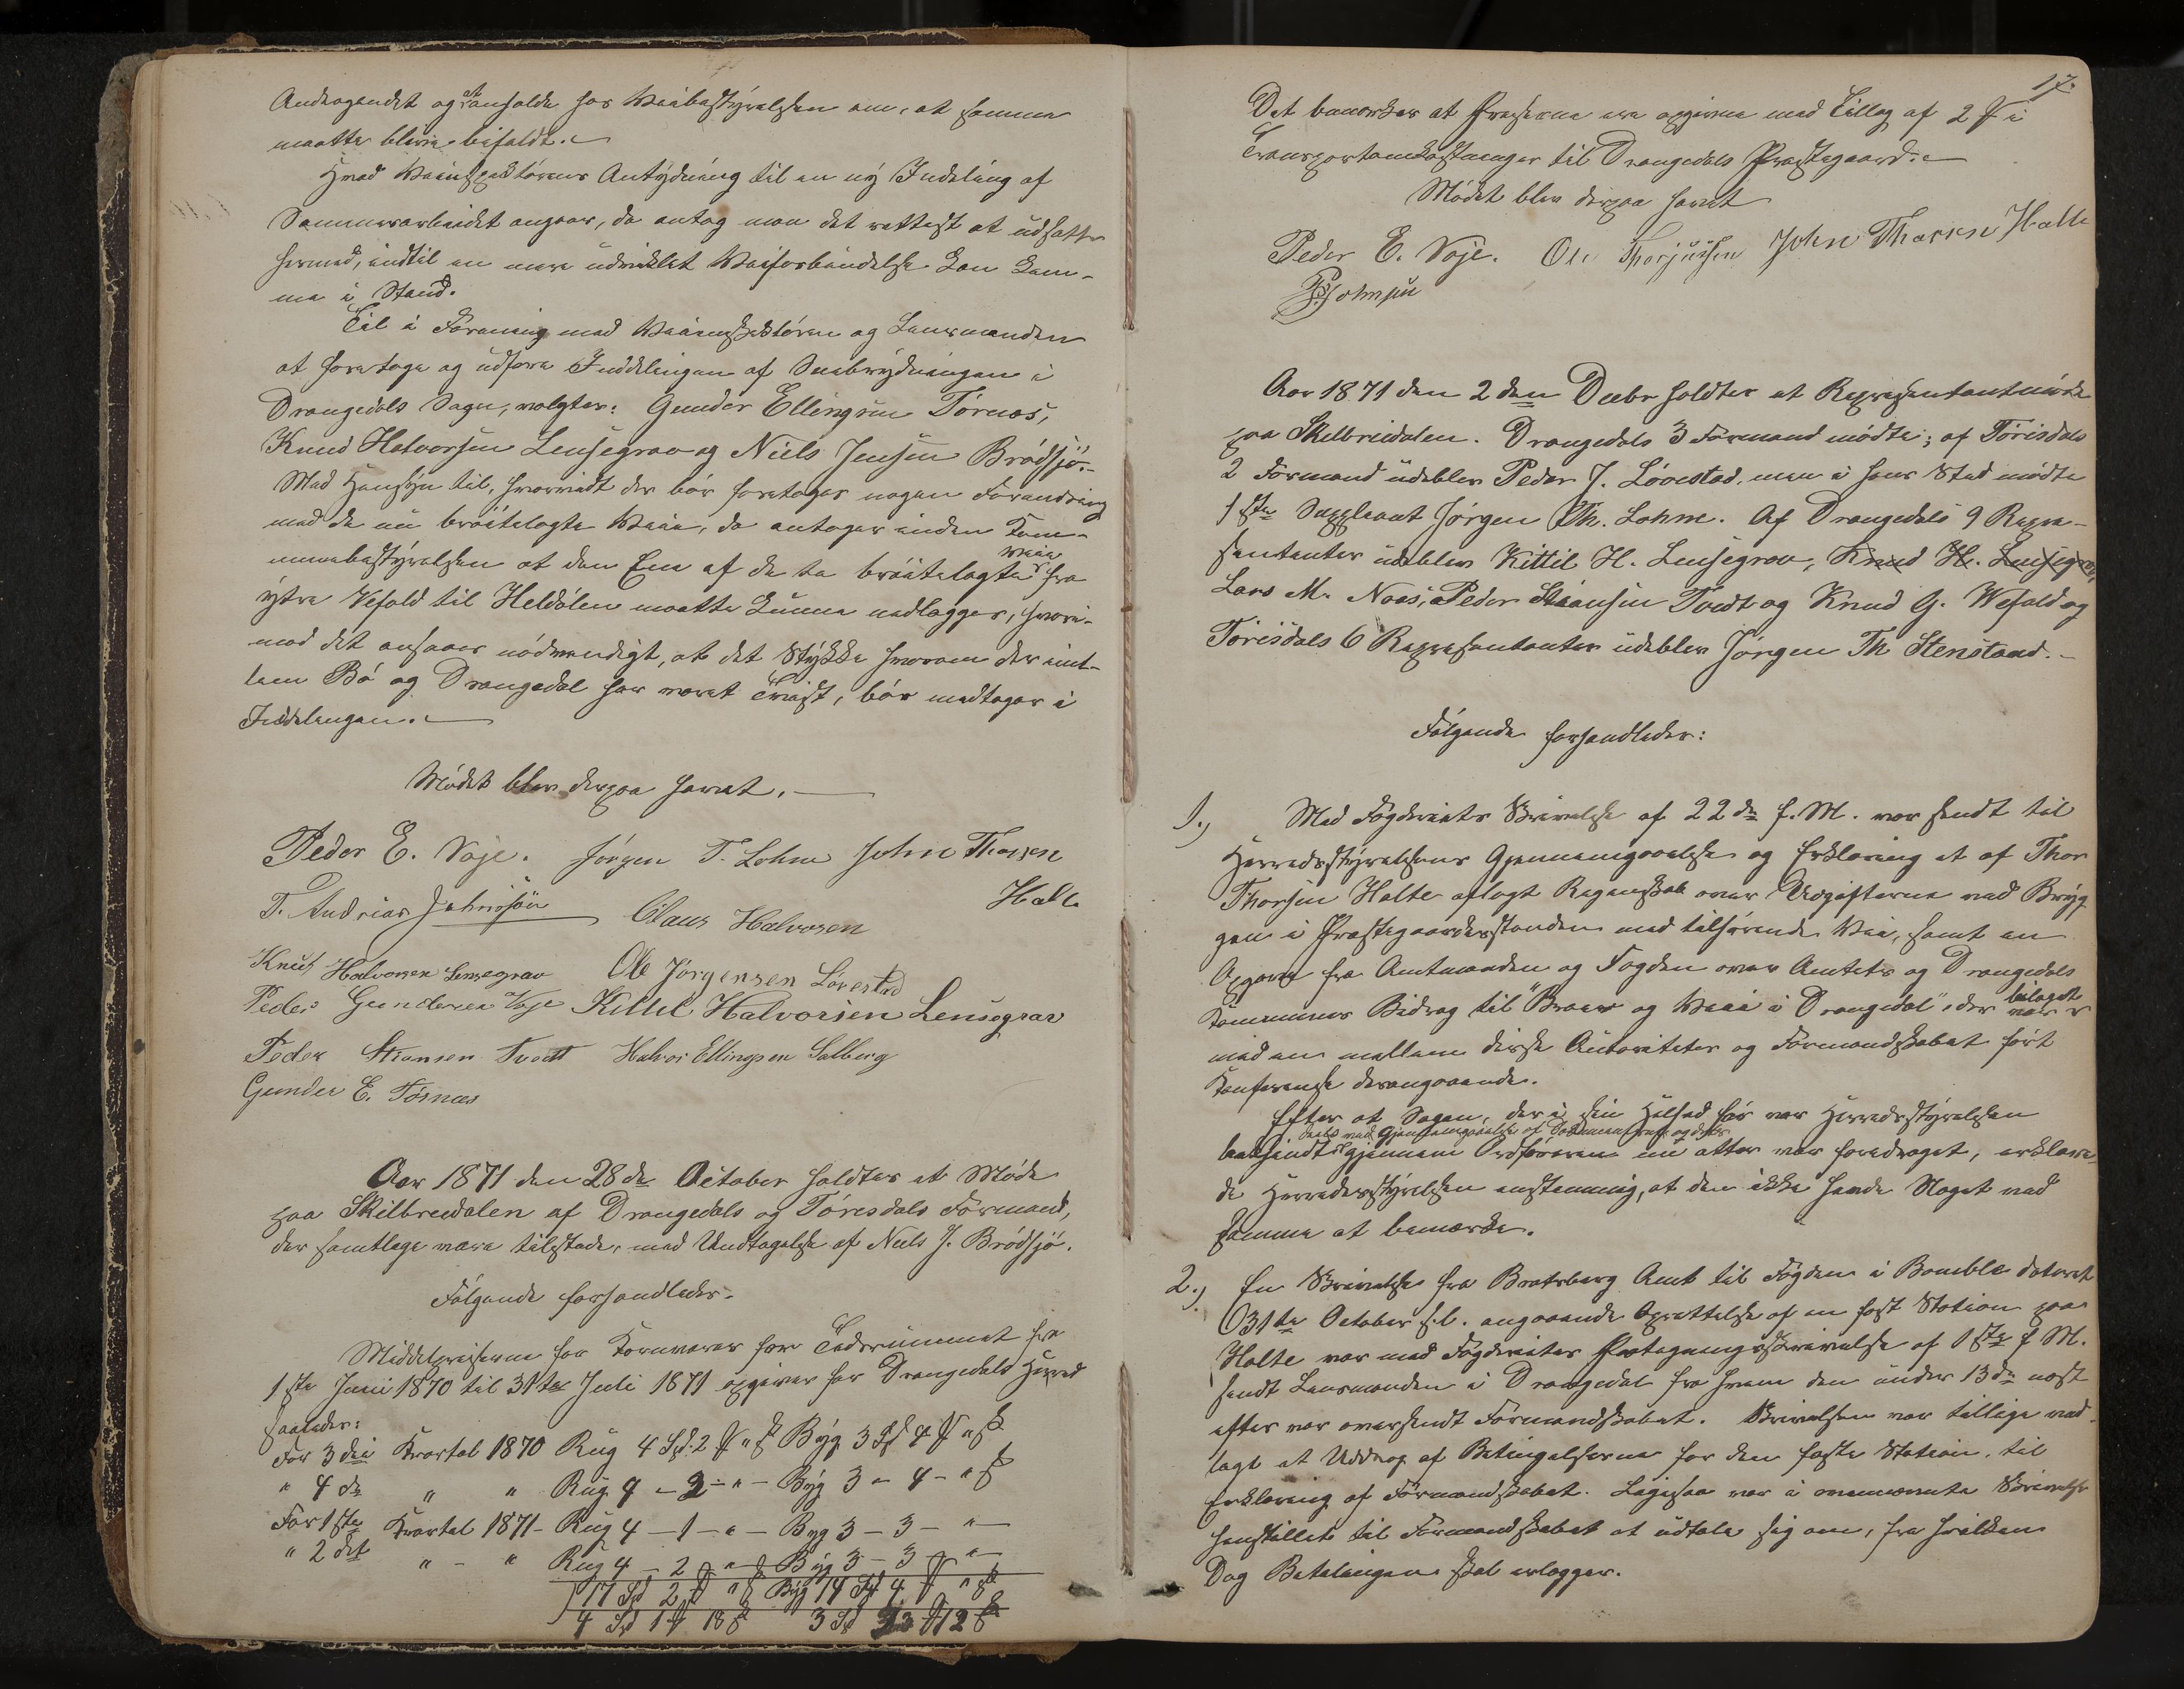 Andragendet og at anholde hos Veibestyrelsen om, at samme
maatte blive bifaldt.
Hvad Veiinspektørens Antydning til en ny Inddeling af
Sommerarbeidet angaar, da antog man det rettest at udsætte
hermed, indtil en mere udviklet Veiforbindelse kan kom-
me i Stand.
Til i Forening med Veiinspektøren og Lensmanden
at foretage og udføre Inddelingen af Snebrydningen i
Drangedals Sogn, valgtes: Gunder Ellingsen Törnæs,
Knud Halvorsen Lensegrav og Niels Jensen Brödsjö.
Med Hensyn til, hvorvidt der bör foretages nogen Forandring
med de nu bröitelagte Veie, da antoges inden Kom-
munebestyrelsen at den Ene af de to bröitelagte Veie fra
ytre Vefald til Heldölen maatte kunne nedlægges, hvori-
mod det ansaaes nödvendigt, at det Stykke hvorom der imel-
lem Bö og Drangedal har været Tvist, bör medtages i
Inddelingen.
Mödet blev derpaa hævet.
Peder E. Voje. Jörgen T. Lohne John Thorsen
Halte
T. Andrias Johnssön Claus Halvorsen
Knut Halvorsen Lensegrav Ole Jørgensen Løvestad
Peder Gundersen Voje Kittil Halvorsen Lensegrav
Peder Stiansen Tvedt Halvor Ellingsen Solberg
Gunder E. Törnæs
Aar 1871 den 28de October holdtes et Möde
paa Skilbreidalen af Drangedals og Törisdals Formænd,
der samtlige være tilstede, med Undtagelse af Niels J. Brödsjö.
Fölgende forhandledes.
Middelpriserne for Kornvarer for Tidsrummet fra
1ste Juni 1870 til 31te Juli 1871 opgives for Drangedals Herred
saaledes:
For 3die Kvartal 1870 Rug 4 Spd. 2 ₰ " ß Byg 3 Spd 4 ₰ " ß
" 4de " " Rug 4 - 2 - " - Byg 3 - 4 - " ß
For 1ste Kvartal 1871 - Rug 4 - 1 - " - Byg 3 - 3 - " -
" 2det " - " Rug 4 - 2 ₰ " ß Byg 3 - 3 ₰ " -
17 Spd 2 ₰ " ß Byg 14 Spd 4 ₰ " ß
4 Spd 1 ₰ 18 ß 3 Spd 3 ₰ 12 ß
17.
Det bemærkes at Priserne ere opgivne med Tillæg af 2 ₰ i
Transportomkostninger til Drangedals Præstegaard.
Mödet blev derpaa hævet
Peder E. Voje. Ole Thorjussen John Thorsen Halte
Johnsen
Aar 1871 den 2den Decbr holdtes et Repræsentantmöde
paa Skilbreidalen. Drangedals 3 Formænd mödte; af Törisdals
2 Formænd udeblev Peder J. Lövestad, men i hans Sted mödte
1ste Suppleant Jörgen Th. Lohne. Af Drangedals 9 Repræ-
sentanter udeblev Kittil H. Lensegrav, Knud H. Lensegrav,
Lars M. Næs, Peder Stiansen Tvedt og Knud G. Wefald og
Törisdals 6 Repræsentanter udeblev Jörgen Th Stenstand.
Fölgende forhandledes:
1.) Med Fogderiets Skrivelse af 22de f. M. var sendt til
Herredsstyrelsens Gjennemgaaelse og Erklæring et af Thor
Thorsen Halte aflagt Regnskab over Udgifterne ved Bryg-
gen i Præstegaardsstranden med tilhörende Vei, samt en
Opgave fra Amtmanden og Fogden over Amtets og Drangedals
Kommunes Bidrag til "Broer og Veie i Drangedal", der var bilaget
med en mellem disse Autoriteter og Formandskabet fört
Konferense derangaaende.
Efter at Sagen, der i sin Helhed för var Herredsstyrelsen
deels ved Gjennemgaaelse af Dokumenterne og deels
bekjendt gjennem Ordföreren nu atter var foredraget, erklære-
de Herredsstyrelsen enstemmig, at den ikke havde Noget ved
samme at bemærke.
2.) En Skrivelse fra Bratsberg Amt til Fogden i Bamble dateret
31te October s.l. angaaende Oprettelse af en fast Station paa
Halte var med Fogderiets Paategningsskrivelse af 1ste f. M.
sendt Lensmanden i Drangedal fra hvem den under 13de næst
efter var oversendt Formandskabet. Skrivelsen var tillige ved-
lagt et Uddrag af Betingelserne for den faste Station, til
Erklæring af Formandskabet. Ligesaa var i ovennævnte Skrivelse
henstillet til Formandskabet at udtale sig om, fra hvilken
Dag Betalingen skal erlægges.